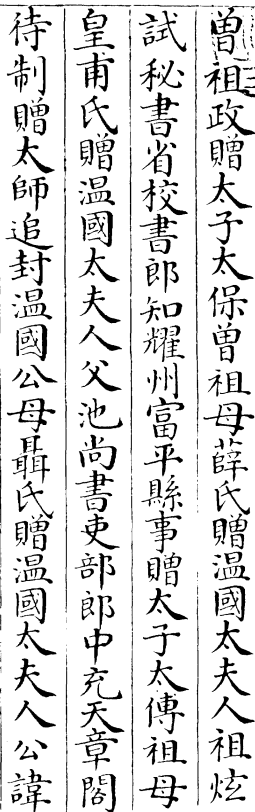 曽祖政贈太子太保曽祖母薛氏贈温國太夫人祖炫
試秘書省校書郎知耀州富平縣事贈太子太傅祖母
皇甫氏贈温國太夫人父池尚書吏部郎中充天章閣
待制贈太師追封温國公母聶氏贈温國太夫人公諱